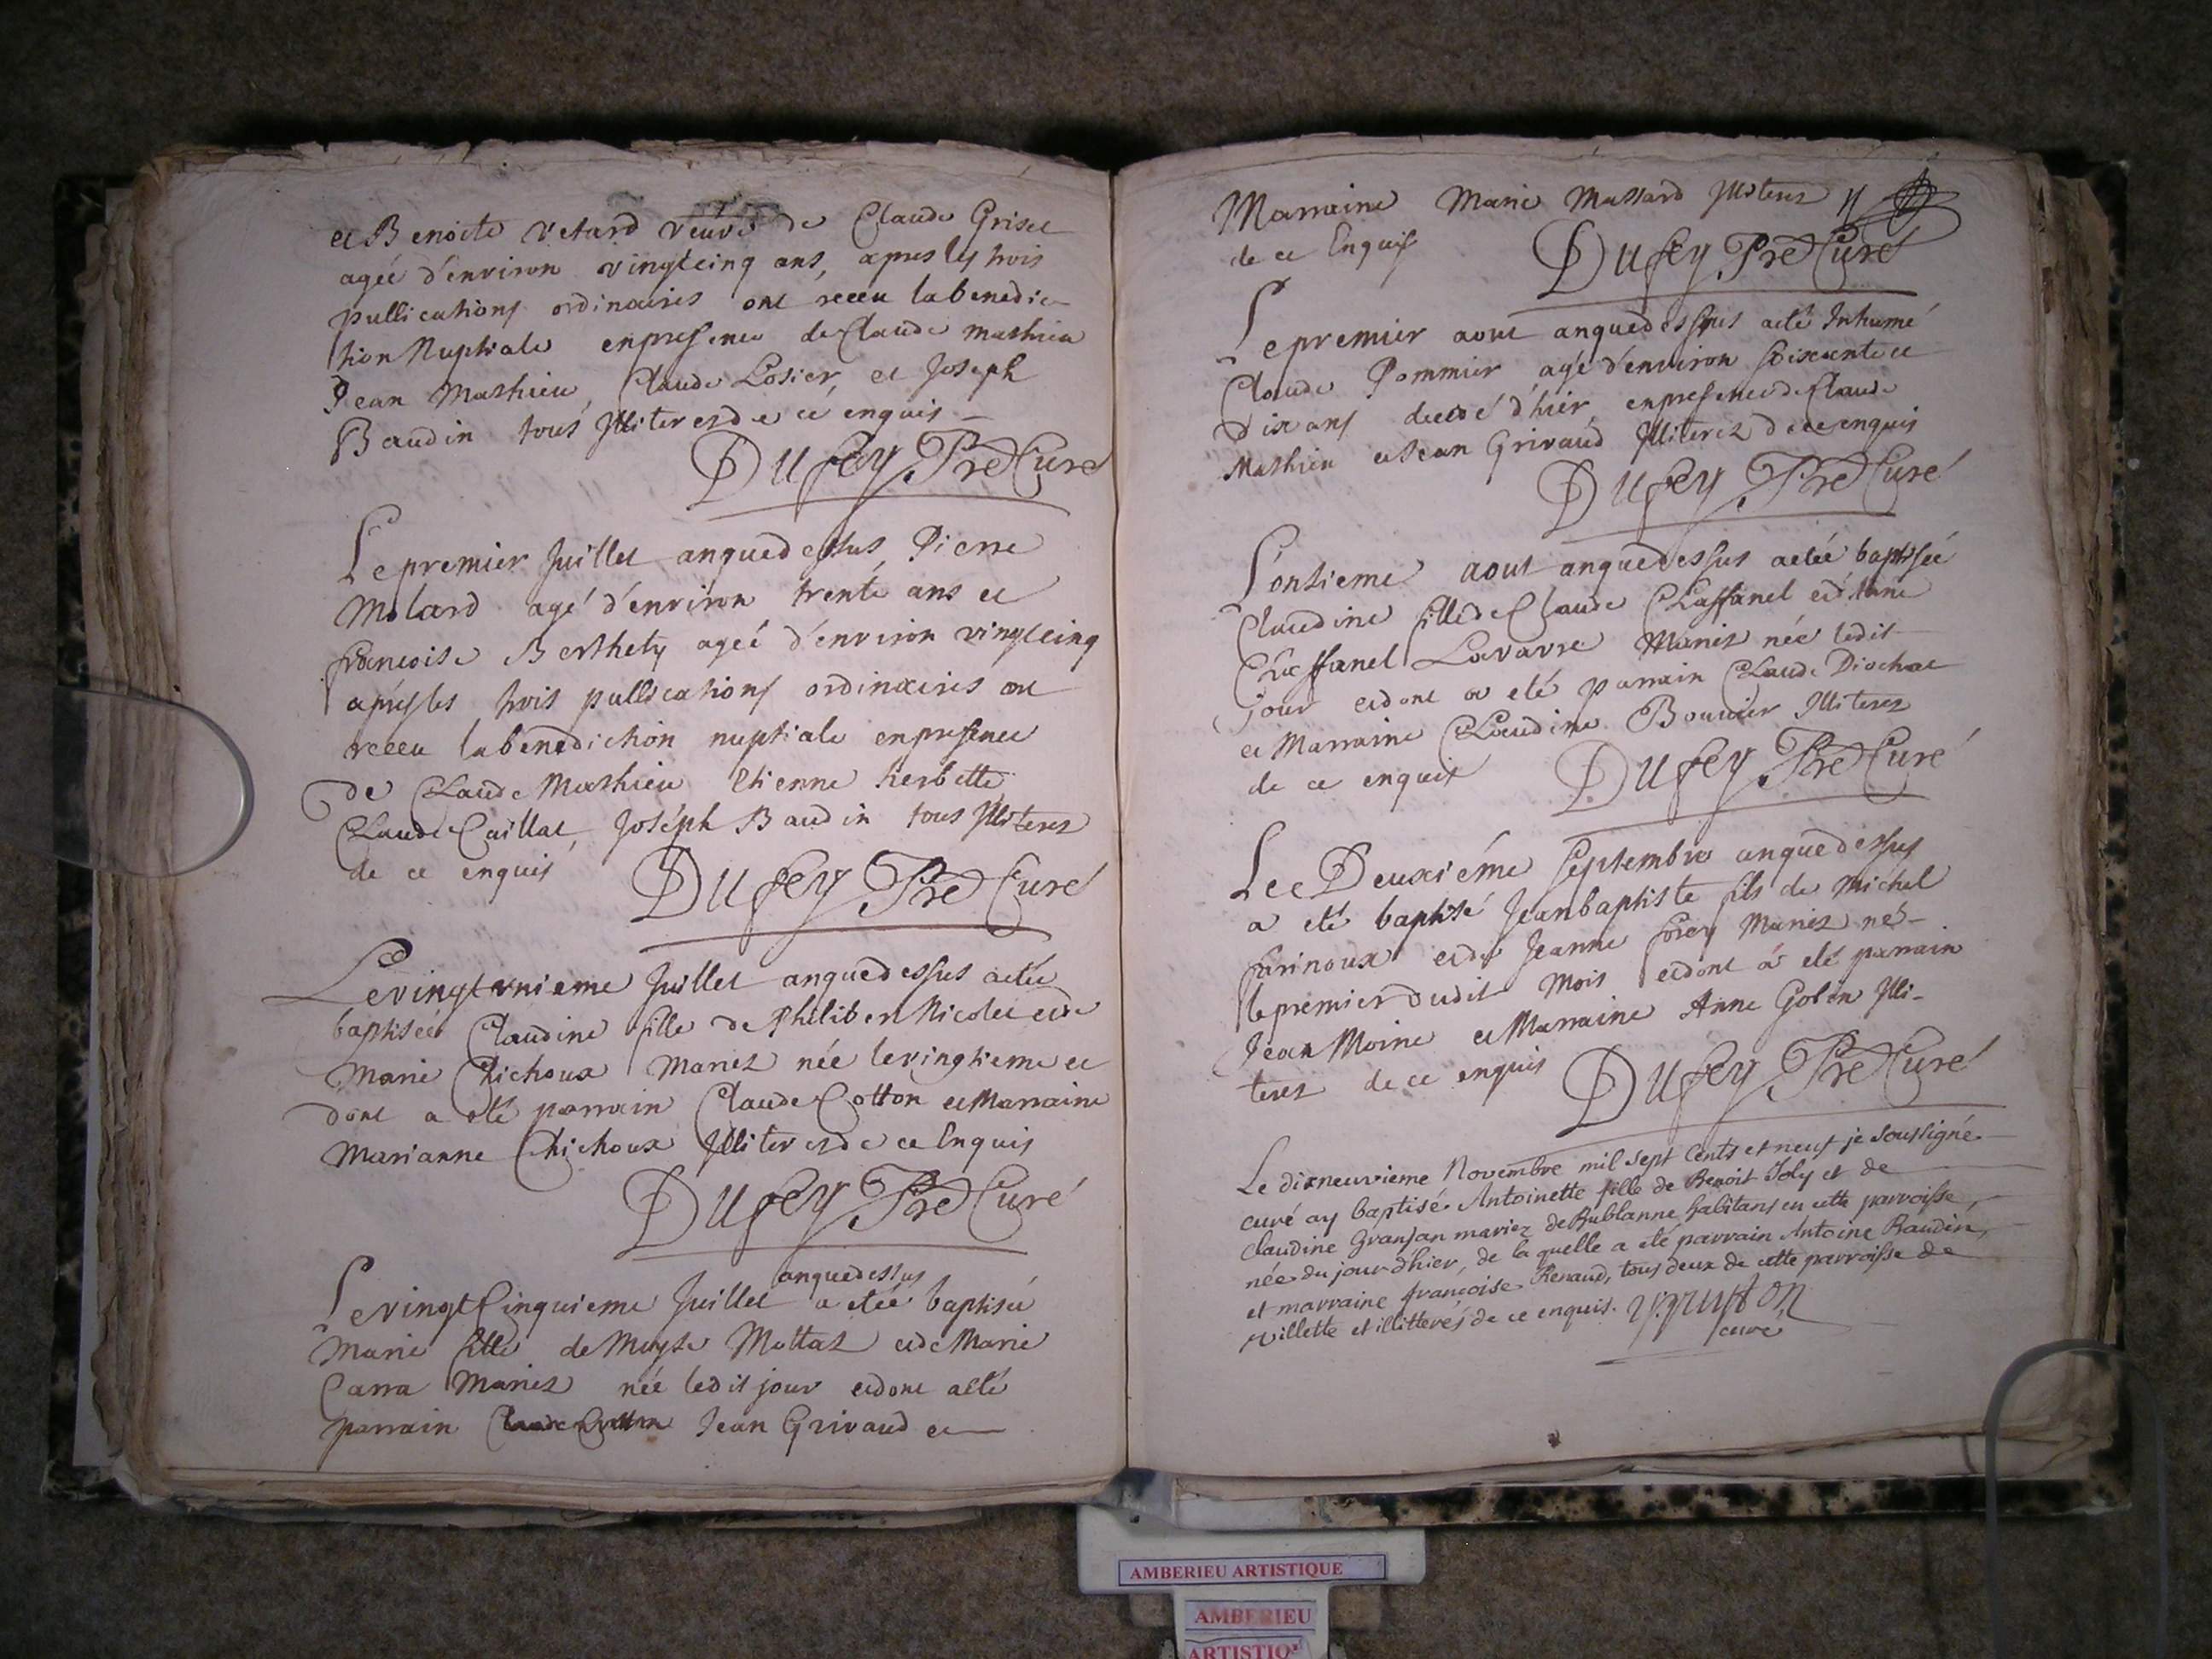 et Benoite Vetard veuve de Claude Griset
agée d'environ vingtcinq ans, apres les trois
publications ordinaires ont receu la benedic-
tion Nuptiale en presence de Claude mathieu
Jean Mathieu, Claude Losier, et Joseph
Baudin tous Illiterez de cé enquis
Dufey Pre Curé
Le premier Juillet an que dessus, Pierre
Molard agé d'environ trente ans et
francoise Berthety ageé d'environ vingtcinq
apres les trois publications ordinaires ont
receu la benediction nuptiale en presence
de Claude Mathieu Etienne herbette
Claude Caillat, Joséph Baudin tous Illiterez
de ce enquis
Dufey Pre Curé
Le vingt unieme Juillet an que dessus a etée
baptisée Claudine fille de Philiber Nicolet et de
Marie Chichoux Mariez née le vingtieme et
dont a eté parrain Claude Cotton et Marraine
Marianne Chichoux Illiterez de ce Enquis
Dufey Pre Curé
an que dessus
Le vingt Cinquieme Juillet a etée baptisée
Marie fille de Moyse Mottaz et de Marie
Carra Mariez née ledit jour et dont a eté
parrain Claude Cotton Jean Grivaud et
Marraine Marie Massard Illiterez
de ce Enquis
Dufey Pre Curé
Le premier aout an que dessus a eté Inhumé
Claude Pommier agé d'environ soixante et
dix ans decedé d'hier en presence de Claude
Mathieu et Jean Grivaud Illiterez de ce enquis
Dufey Pre Curé
L'onsieme aout an que dessus a etée baptisée
Claudine fille de Claude Chaffanel et d'Anne
Chaffanel Lavavre Mariez née ledit
Jour et dont a eté parrain Claude Diochat
et Marraine Claudine Bouvier Illiterez
de ce enquis
Dufey Pre Curé
Lee Deuxiéme Septembre an que dessus
a eté baptisé Jean baptiste fils de Michel
farinoux et de Jeanne forey Mariez né
le premier dudit Mois et dont á eté parrain
Jean Moine et Marraine Anne Gobin Illi-
terez de ce enquis
Dufey Pre Curé
Le dixneuvieme Novembre mil sept Cents et neuf je soussigné
curé ay baptisé Antoinette fille de Benoit Joly et de
Claudine Granjan mariez de Bublanne habitans en cette parroisse,
née du jour d'hier, de la quelle a eté parrain Antoine Baudin,
et marraine françoise Renaud, tous deux de cette parroisse de
villette et illitterés de ce enquis.
curé
AMBERIEU ARTISTIQUE
AMBERIEU
ARTISTIQ